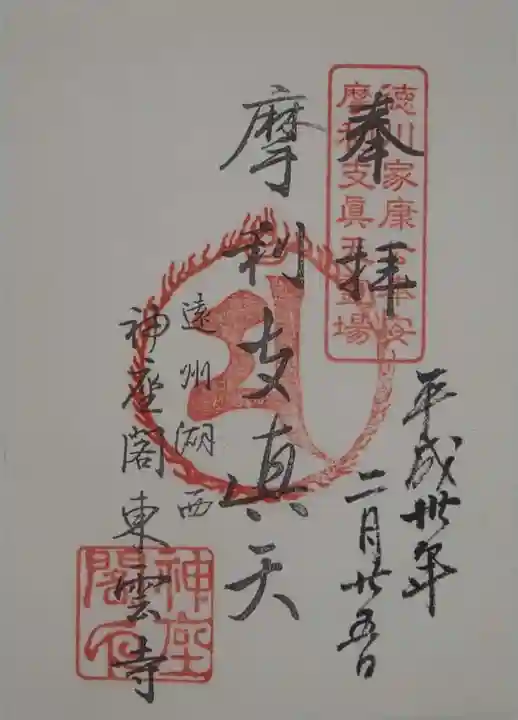 奉拝
徳川家康公奉安
摩利支眞天霊場
平成卅年
二月廿五日
摩利支真天
遠州湖西
神座閣東雲寺
神座
閣